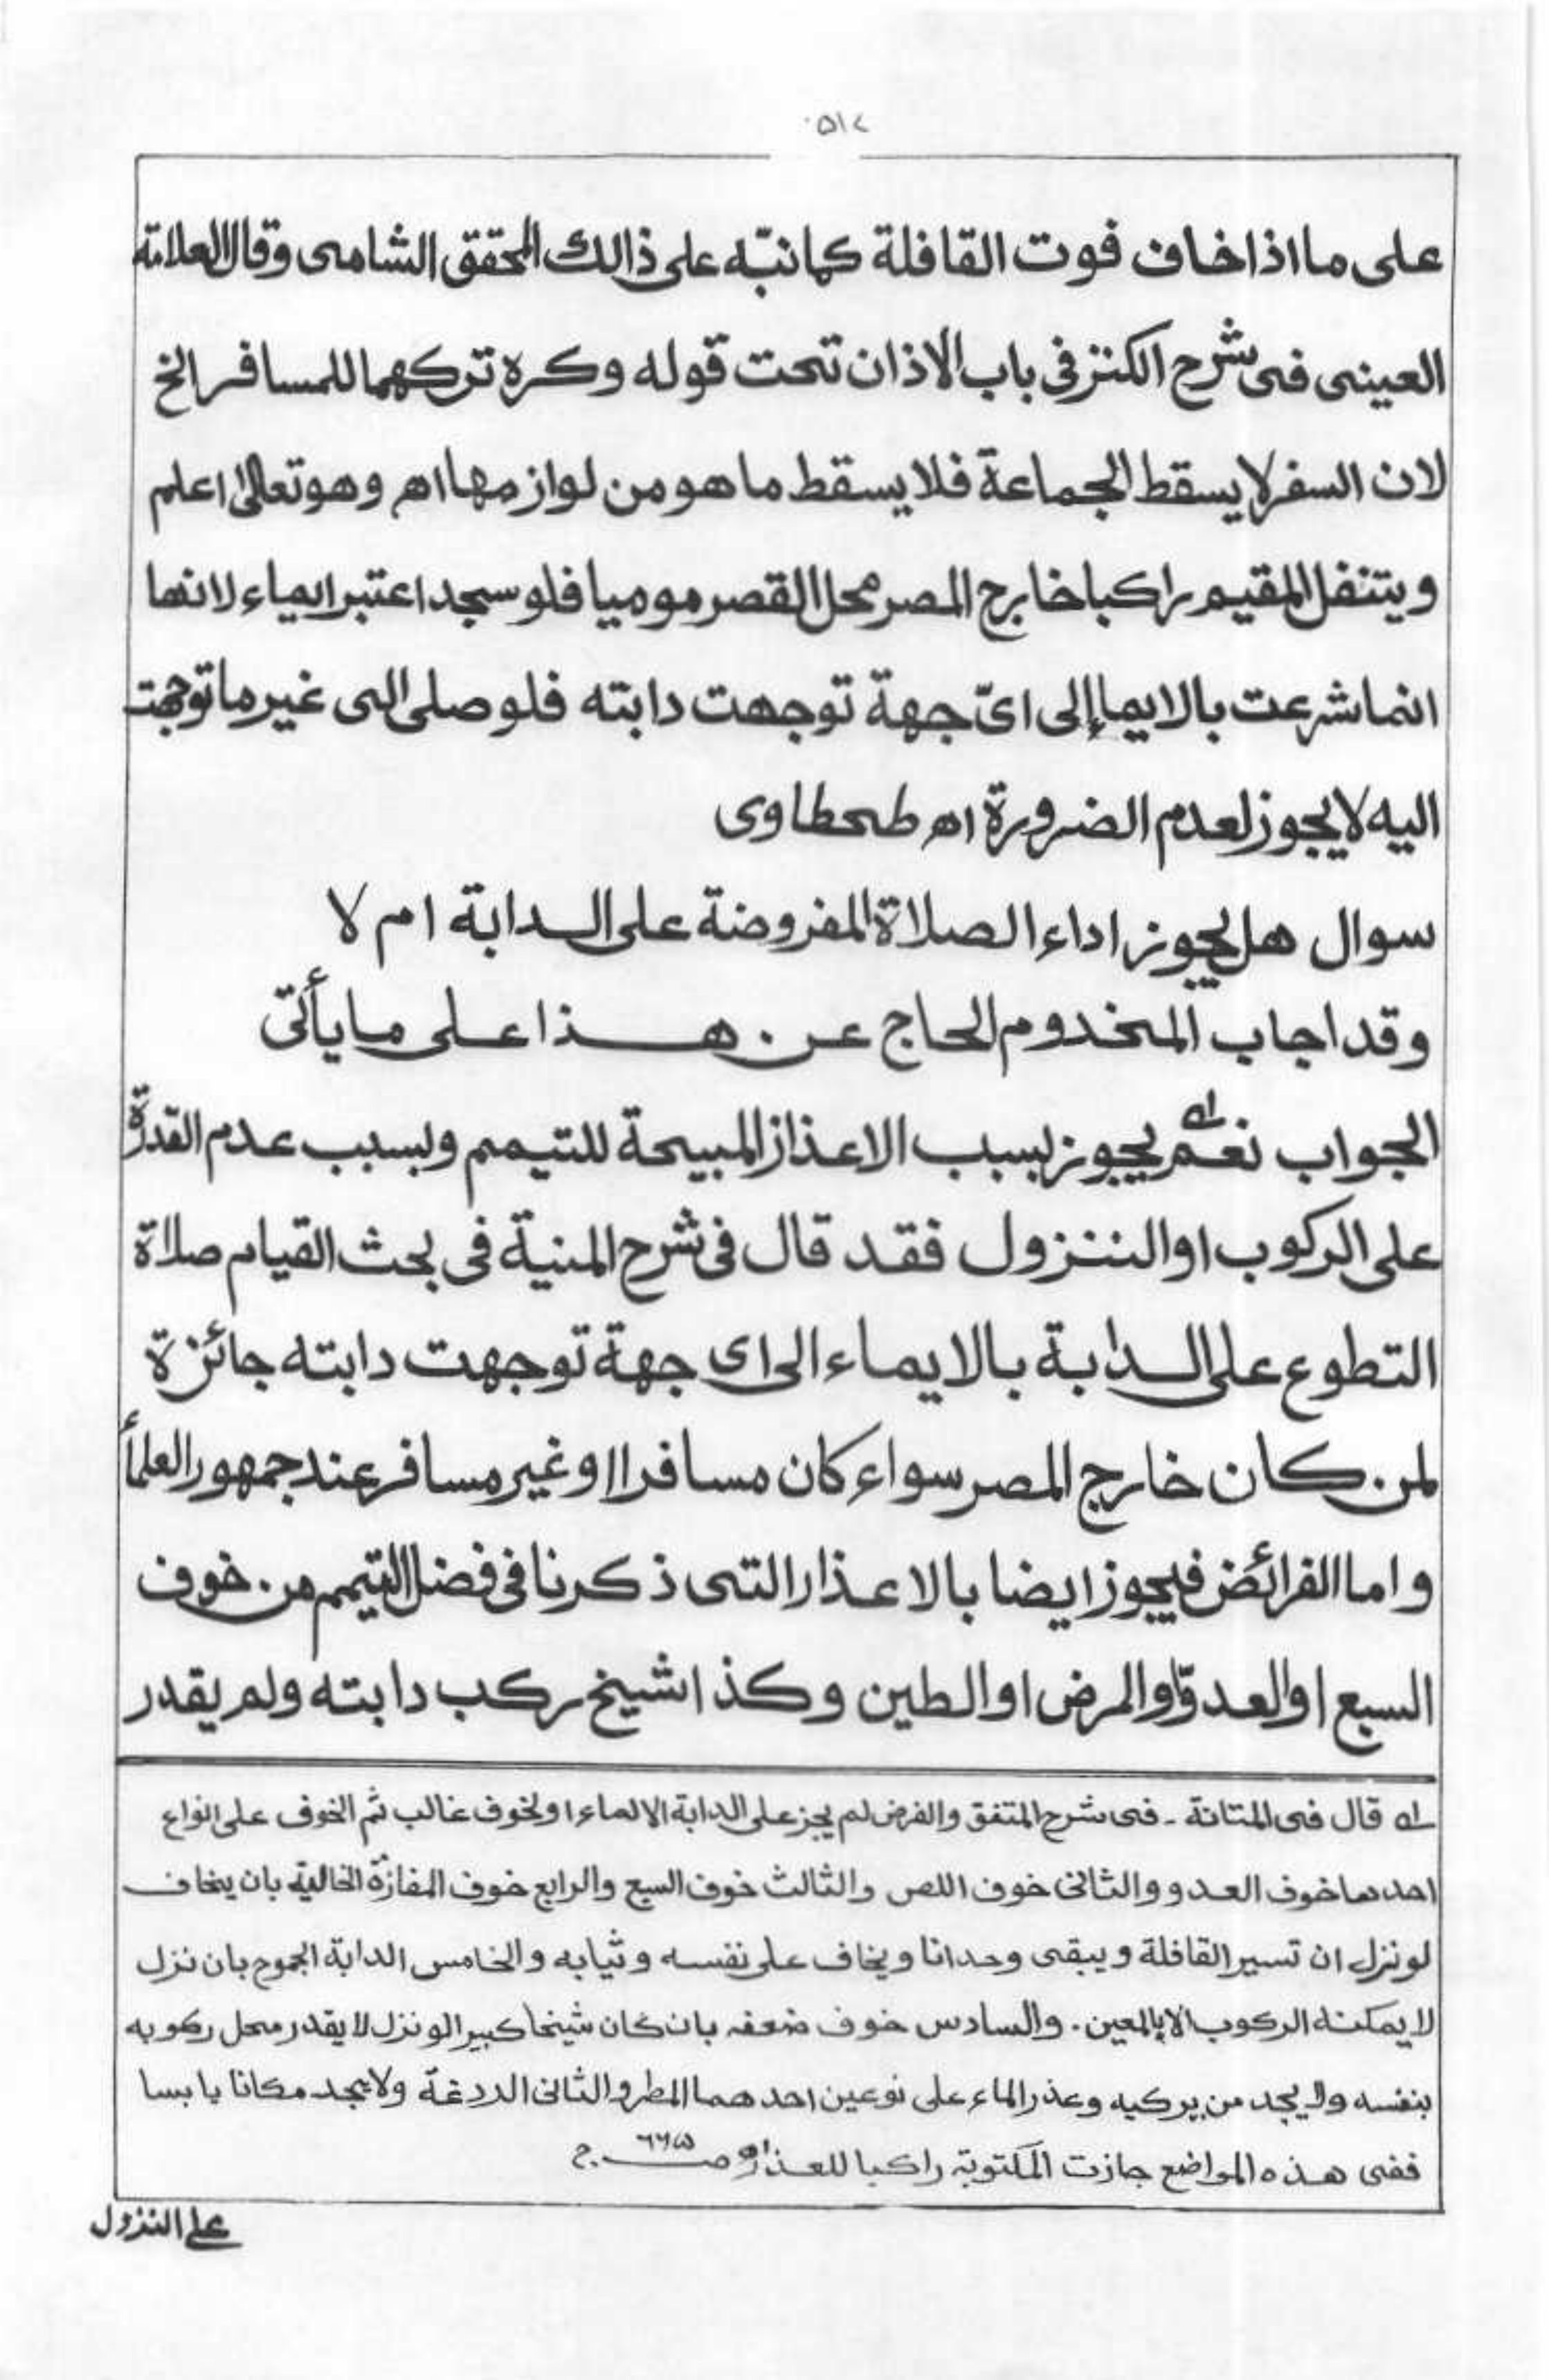 ٥١٢
على ما اذا خاف فوت القافلة كما نبّه على ذالك المحقق الشامى وقال العلامة
العينى فى شرح الكنز فى باب الاذان تحت قوله وكره تركهما للمسافر الخ
لان السفر لا يسقط الجماعة فلا يسقط ما هو من لوازمها اھ وهو تعالىٰ اعلم
ويتنفل المقيم راكبا خارج المصر محل القصر موميا فلو سجد اعتبر ايماء لانها
انما شرعت بالايما إلى اىّ جهة توجهت دابته فلو صلى الى غير ما توجهت
اليه لا يجوز لعدم الضرورة اھ طحطاوى
سوال هل يجوز اداء الصلاة المفروضة على الدابة ام لا
وقد اجاب المخدوم الحاج عن هذا على ما يأتى
الجواب نعم يجوز بسبب الاعذاز المبيحة للتيمم وبسبب عدم القدرة
على الركوب او النزول فقد قال فى شرح المنية فى بحث القيام صلاة
التطوع على الدابة بالايماء الى اى جهة توجهت دابته جائزة
لمن كان خارج المصر سواء كان مسافرا او غير مسافر عند جمهور العلمأ
واما الفرائض فيجوز ايضا بالاعذار التى ذكرنا فى فضل التيمم من خوف
السبع او العدوّ او المرض او الطين وكذا شيخ ركب دابته ولم يقدر
له قال فى المتانة - فى شرح المتفق والفرض لم يجز على الدابة الا لماء او لخوف غالب ثم الخوف على انواع
احدها خوف العدو والثانى خوف اللص والثالث خوف السبع والرابع خوف المفازة الخالية بان يخاف
لو نزل ان تسير القافلة ويبقى وحدانا ويخاف على نفسه وثيابه والخامس الدابة الجموح بان نزل
لا يمكنه الركوب الا بالمعين . والسادس خوف ضعفه بان كان شيخا كبيرا لو نزل لا يقدر محل ركوبه
بنفسه ولا يجد من يركبه وعذر الماء على نوعين احدهما المطر والثانى الردغة ولا يجد مكانا يابسا
ففى هذه المواضع جازت المكتوبة راكبا للعذر اھ صـ ٦٦٥ ج
على النزول